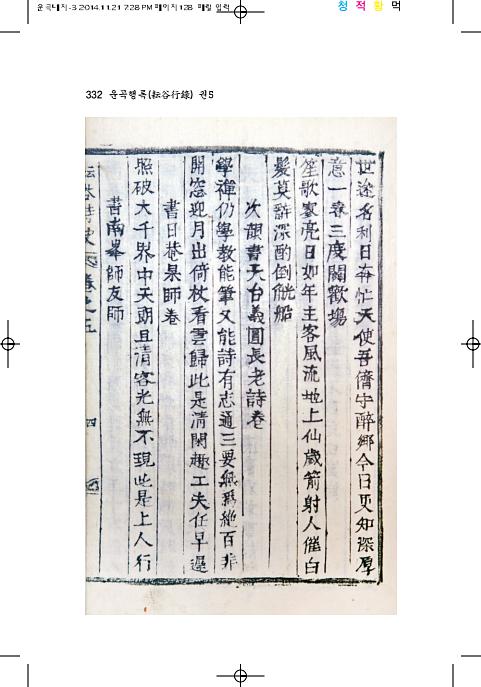 운곡대지-3 2014.11.21 7:28 PM 페이지128 매킨
청 적 황 먹
332 운곡행록(耘谷行錄) 권5
世途名利日奔忙天使吾儕守醉鄕今日更知深厚
意一春三度闘歡場
笙歌寥亮日如年主客風流地上仙歲箭射人催白
髮莫辭深酌倒觥船
次韻書天台義圓長老詩卷
學禪仍學敎能筆又能詩有志通三要無爲絶百非
開窓迎月出倚杖看雲歸此是淸閑趣工夫任早遲
書日菴杲師卷
照破大千界中天朗且淸容光無不現此是上人行
書南峯師友師
耘谷詩史 卷之五 四